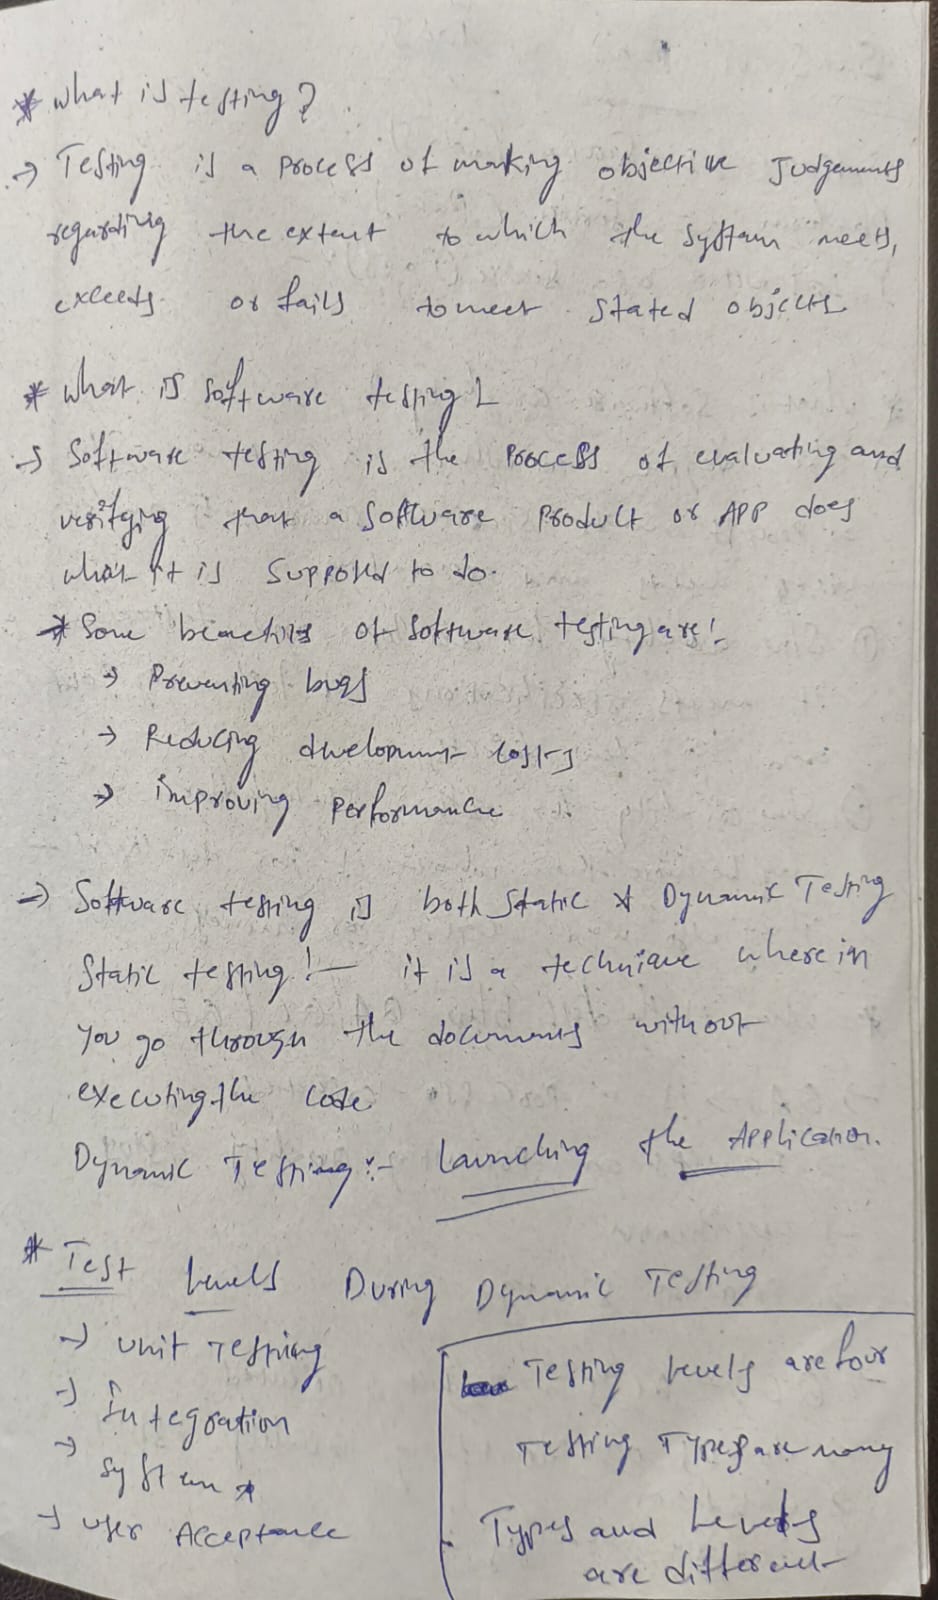 * What is testing?
→ Testing is a process of making objective Judgements
regarding the extent to which the system meets,
exceeds or fails to meet stated objects
* What is software testing?
→ Software testing is the process of evaluating and
verifying that a software product or APP does
what it is supposed to do.
* Some benefits of software testing are!
→ Preventing bugs
→ Reducing development costs
→ improving performance
→ Software testing is both Static & Dynamic Testing
Static testing!— it is a technique wherein
you go through the documents without
executing the code
Dynamic Testing:- Launching the Application.
* Test Levels During Dynamic Testing
→ Unit Testing
→ Integration
→ System *
→ User Acceptance
Testing Levels are four
Testing Types are many
Types and Levels
are different